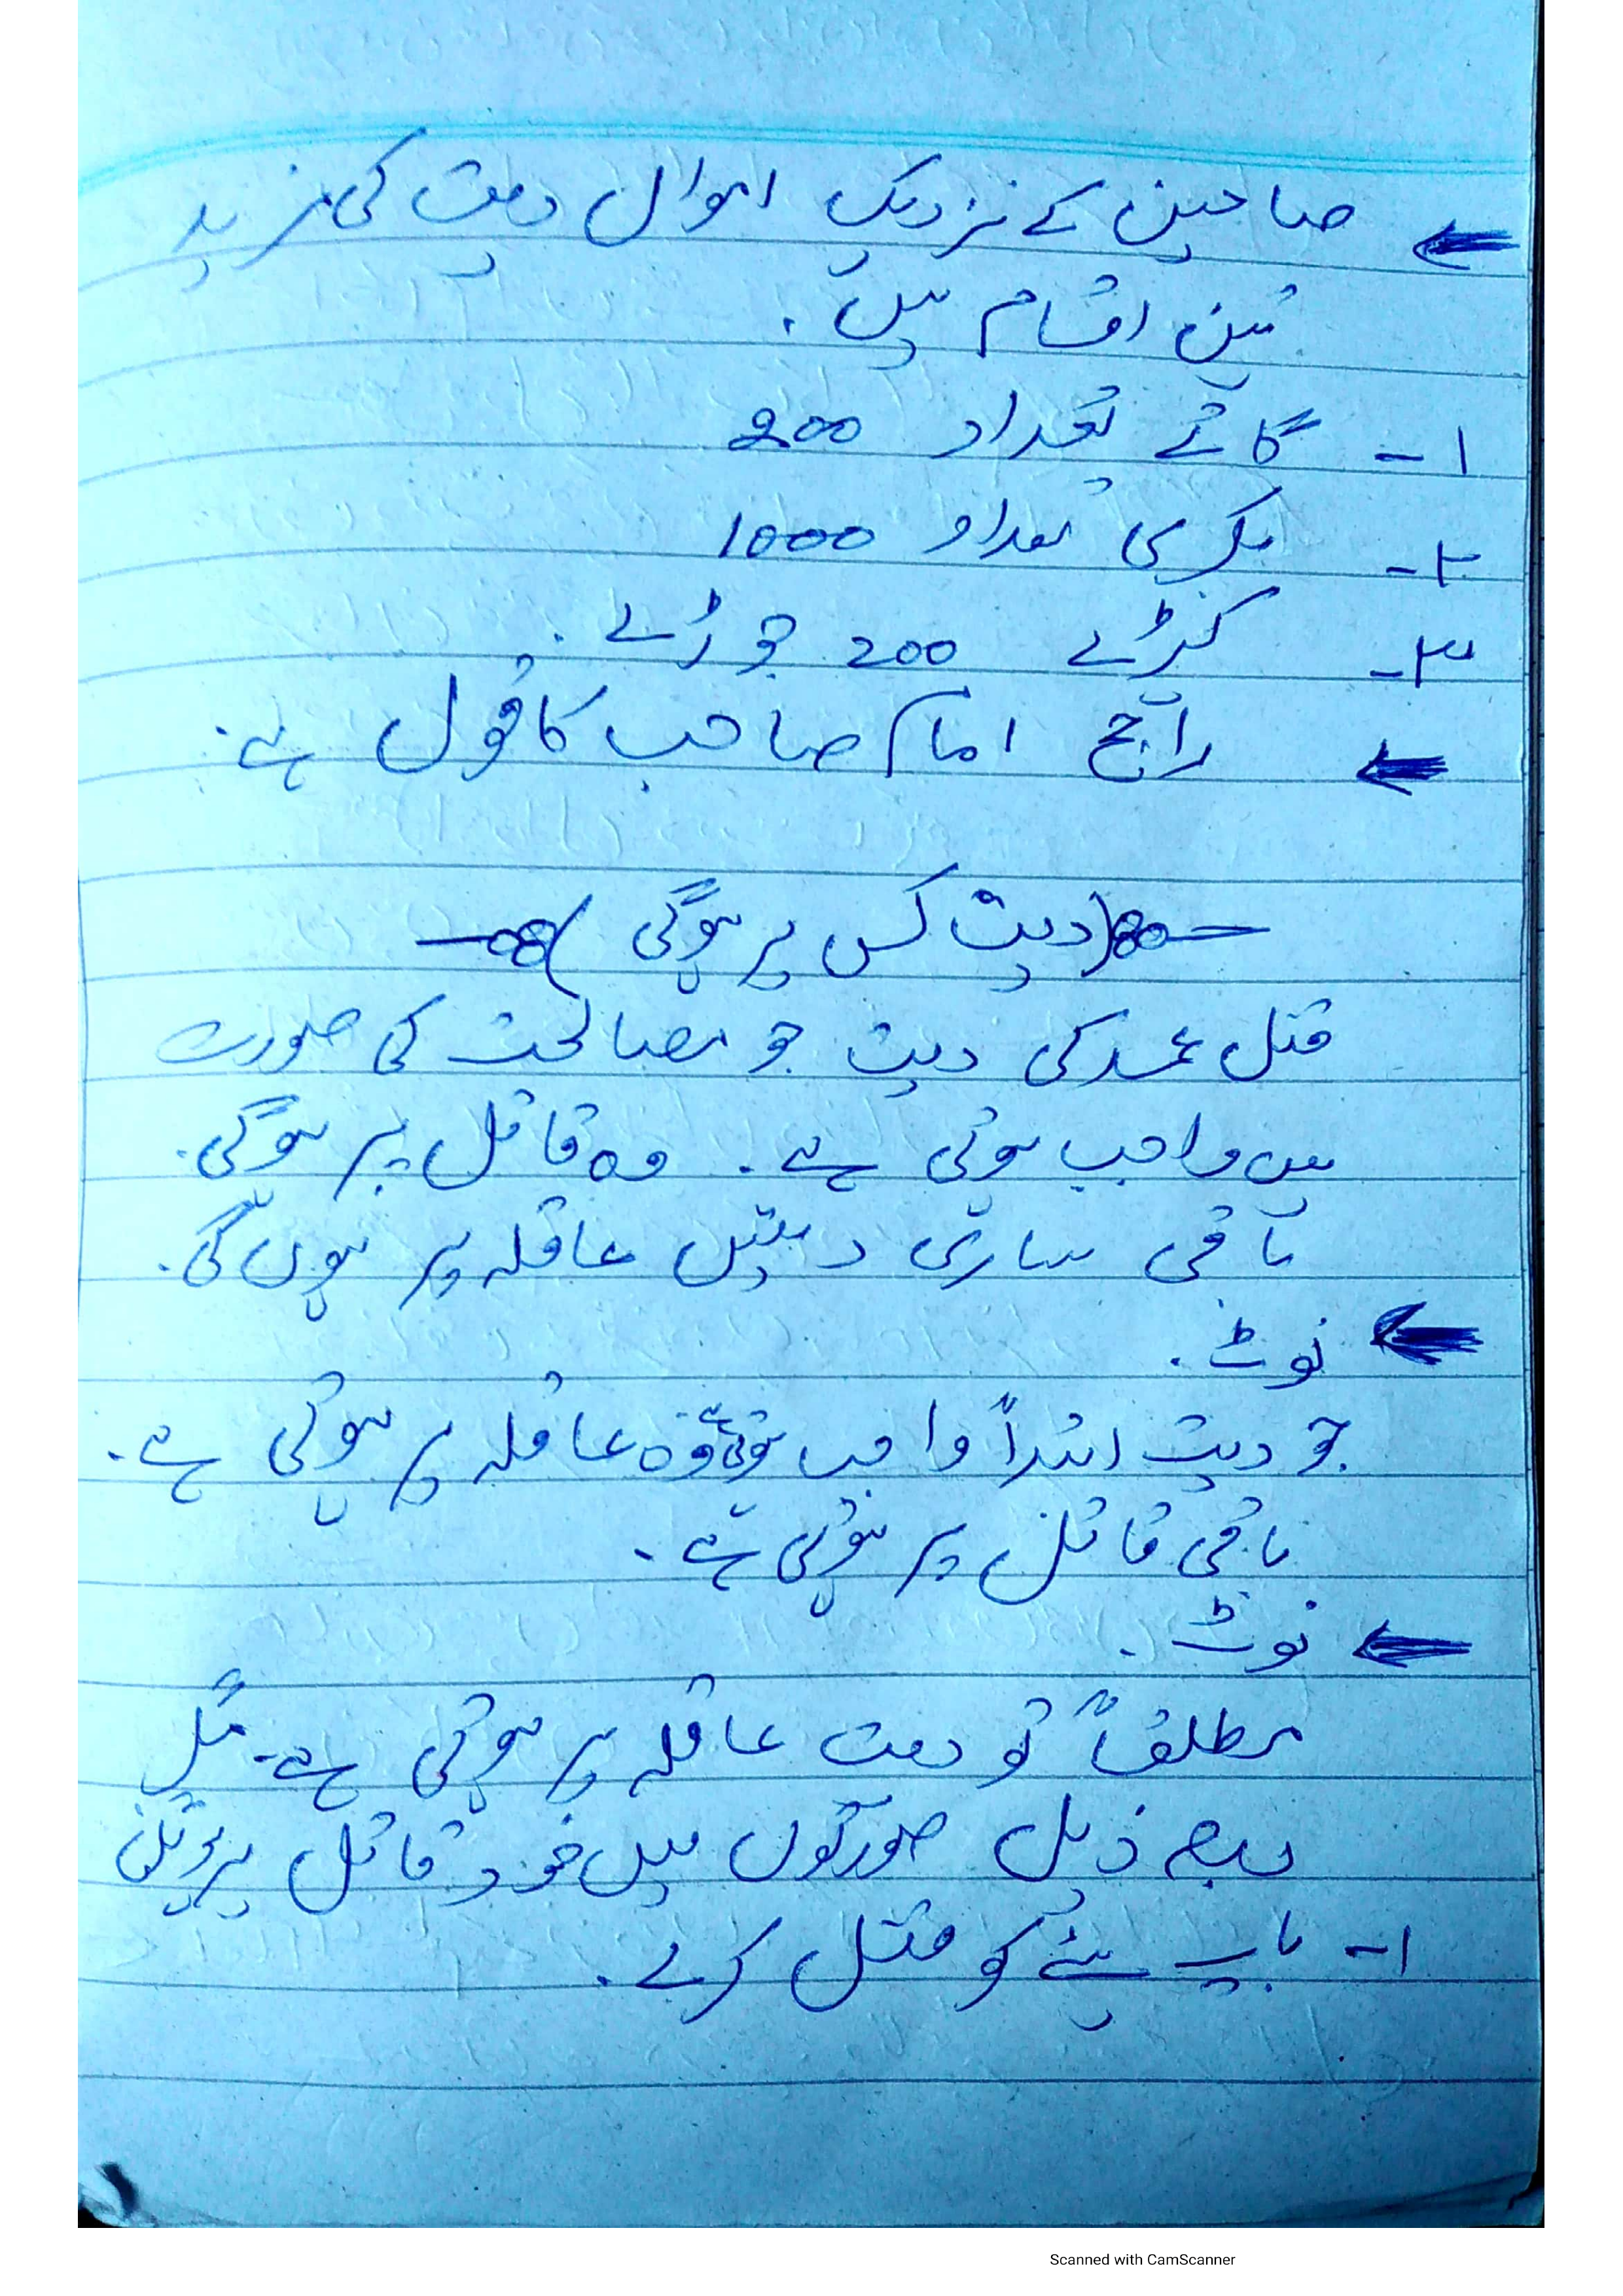 ← صاحبین کے نزدیک اموال دیت کی مزید
تین اقسام ہیں.
۱- گائے تعداد 200
۲- بکری تعداد 1000
۳- کپڑے 200 جوڑے.
← راجح امام صاحب کا قول ہے.
(دیت کس پر ہوگی)
قتل عمد کی دیت جو مصالحت کی صورت
میں واجب ہوتی ہے. وہ قاتل پر ہوگی.
باقی ساری دیتیں عاقلہ پر ہوں گی.
← نوٹ.
جو دیت ابتداً واجب ہوتی ہے وہ عاقلہ پر ہوتی ہے.
باقی قاتل پر ہوتی ہے.
← نوٹ.
مطلقاً تو دیت عاقلہ پر ہوتی ہے- مگر
ذیل صورتوں میں خود قاتل پر ہوتی
۱- باپ بیٹے کو قتل کرے.
Scanned with CamScanner